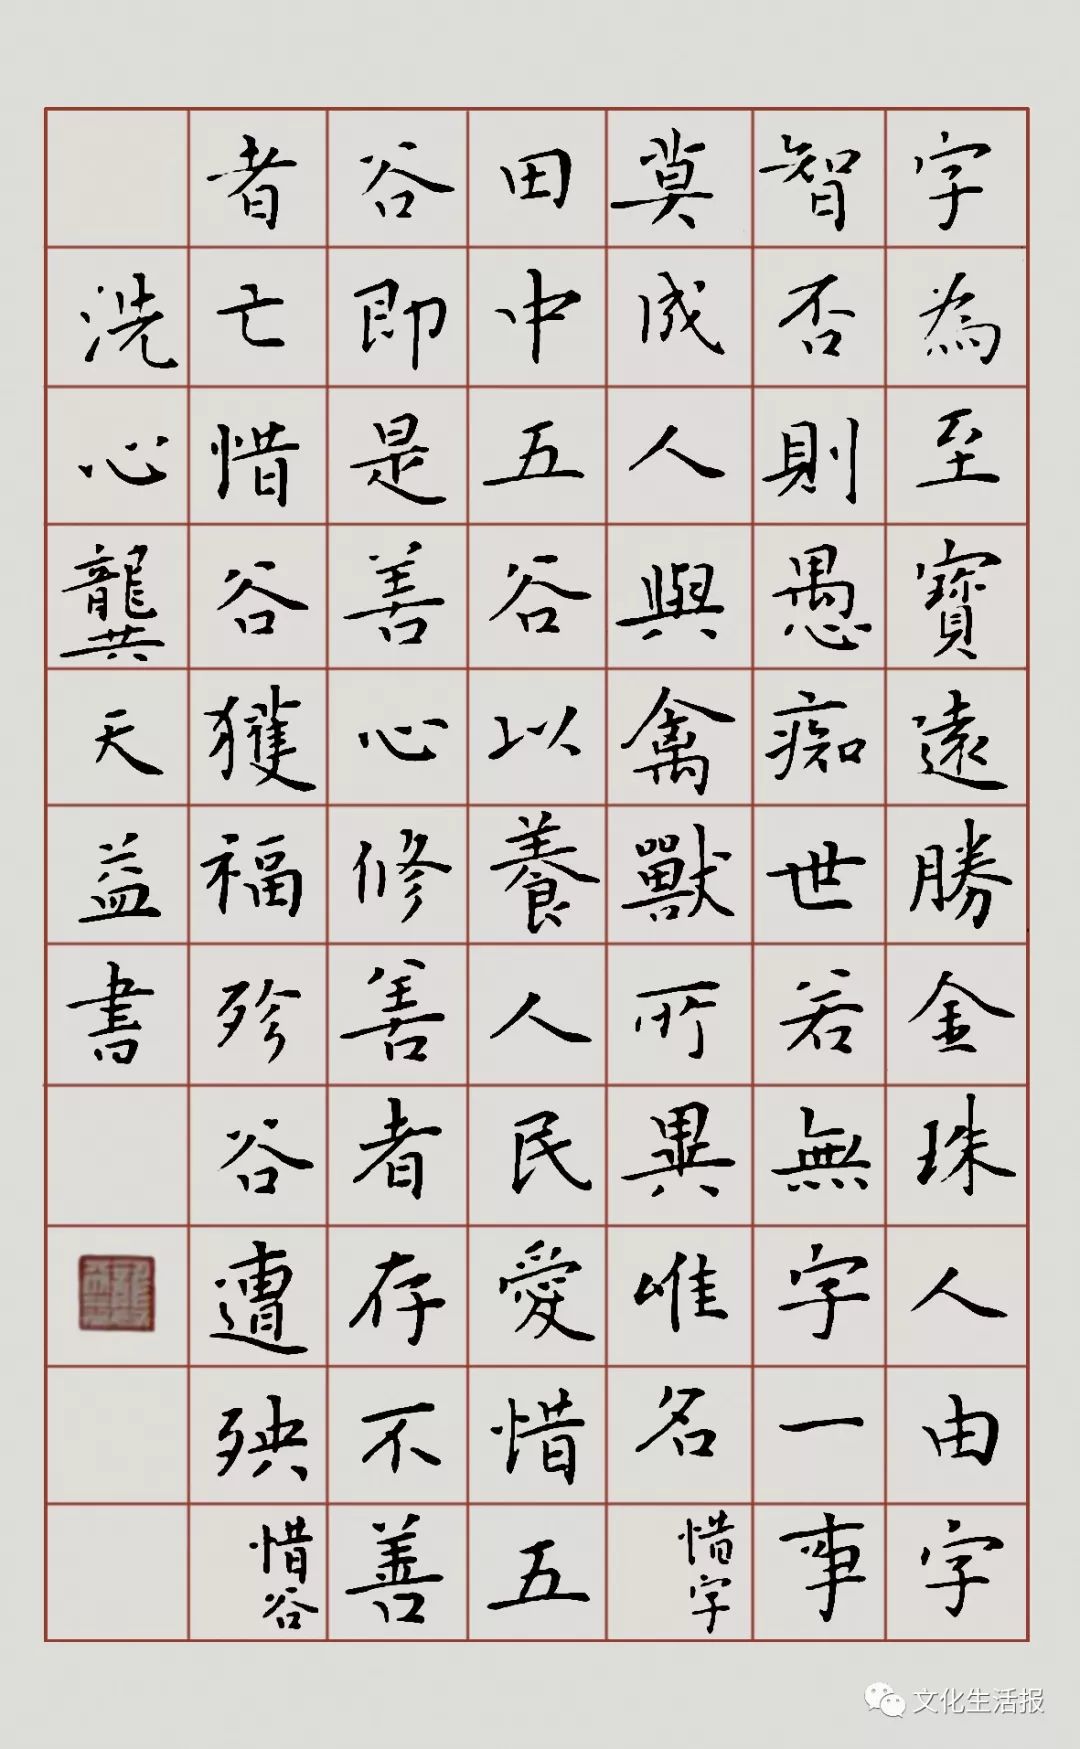 字為至寶遠勝金珠人由字
智否則愚痴世若無字一事
莫成人與禽獸所異唯名惜字
田中五谷以養人民愛惜五
谷即是善心修善者存不善
者亡惜谷獲福殄谷遭殃惜谷
洗心龔天益書
文化生活报